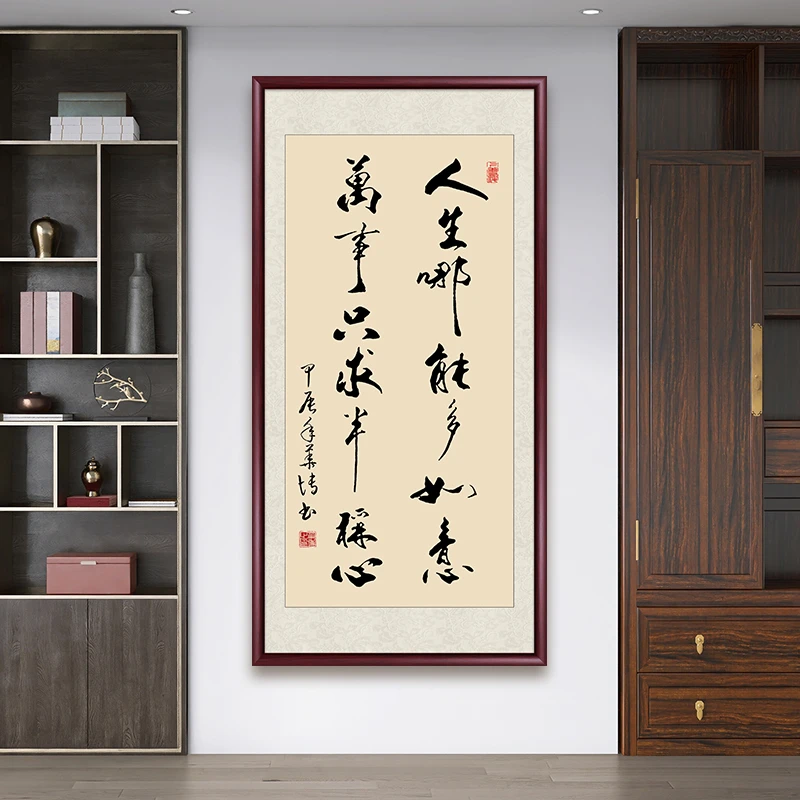 人生哪能多如意
萬事只求半稱心
甲辰年
书